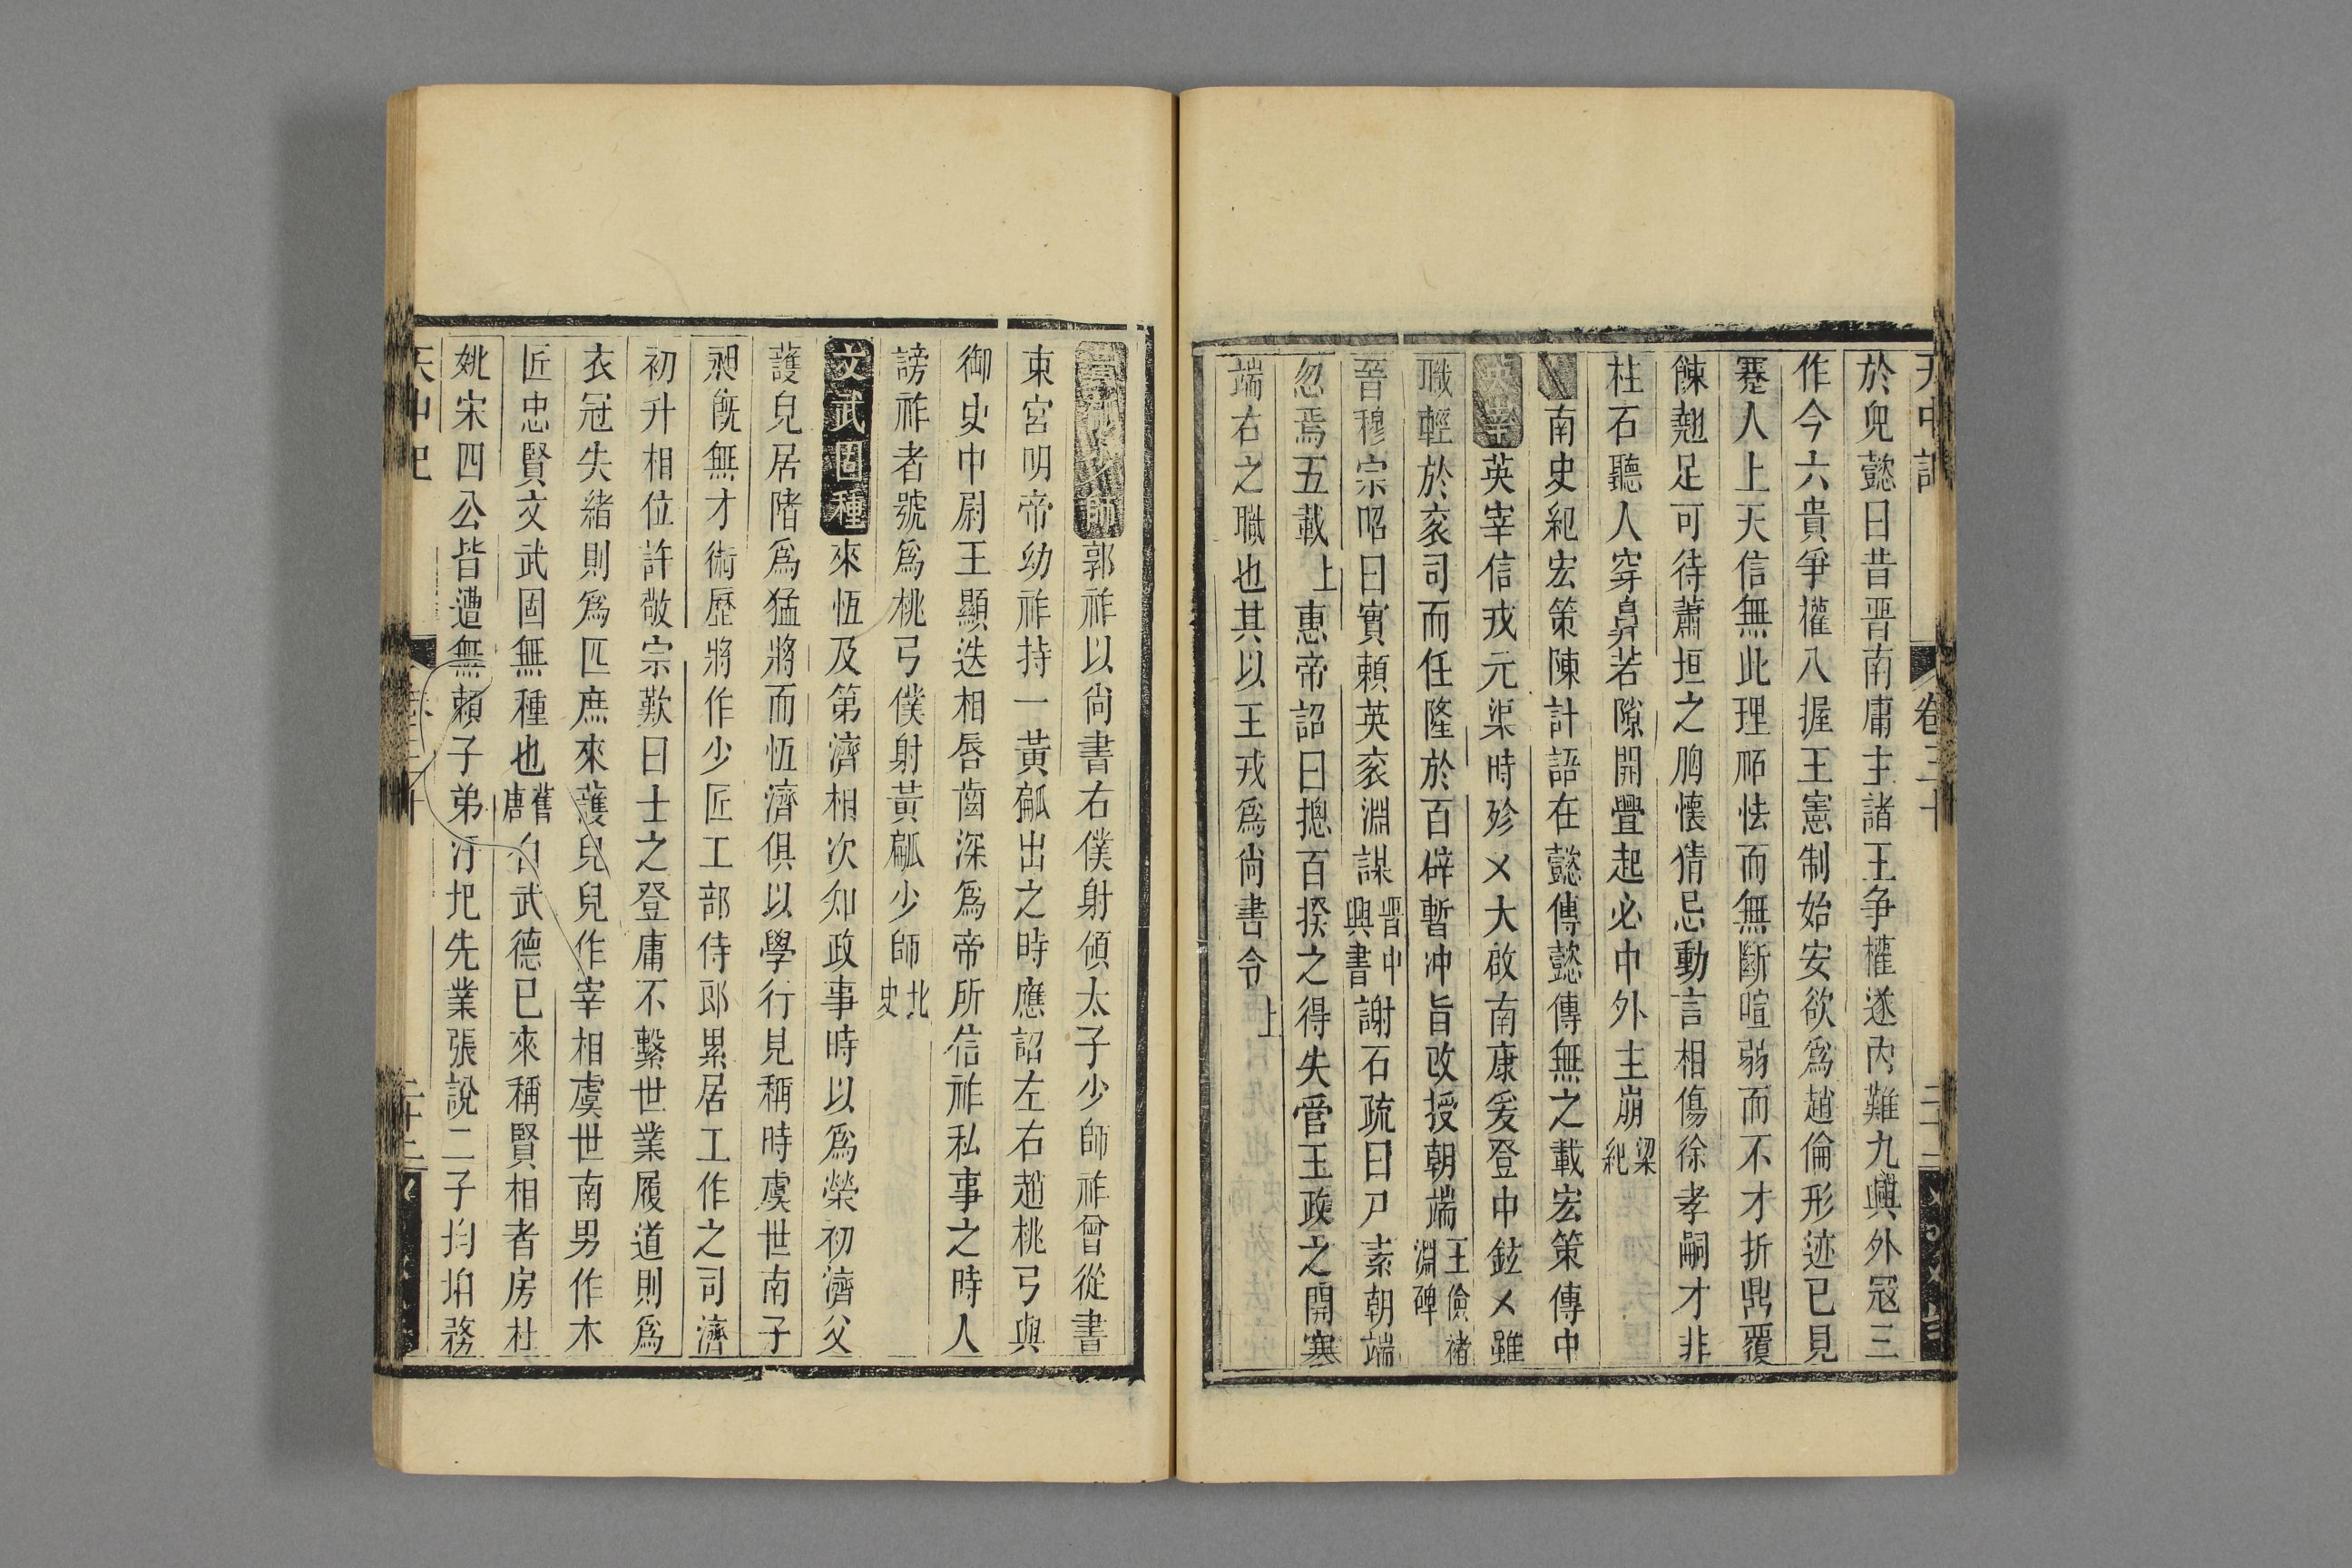 天中記 卷三十
於兜懿曰昔晋南庸主諸王争權遂内難九興外冦三
作今六貴爭權八握王憲制始安欲爲趙倫形迹已見
蹇人上天信無此理
怯而無斷暄弱而不才折鼎覆
餗翹足可待蕭坦之胸懐猜忌動言相傷徐孝嗣才非
柱石聽人穿鼻若隙開舋起必中外土崩梁紀
南史紀宏策陳計語在懿傳懿傳無之載宏策傳中
英宰英宰信戎元渠時殄㐅大啟南康爰登中鉉㐅雖
職輕於衮司而任隆於百辟暫冲旨改授朝端王儉褚淵碑
晉穆宗昭曰實頼英衮淵謀晋中興書謝石疏曰尸素朝端
忽焉五載上惠帝詔曰摠百揆之得失管王政之開塞
端右之職也其以王戎爲尚書令上
黃㼐少師郭祚以尚書右僕射傾太子少師祚曾從書
東宮明帝幼祚持一黃㼐出之時應詔左右趙桃弓與
御史中尉王顯迭相唇齒深爲帝所信祚私事之時人
謗祚者號爲桃弓僕射黃㼐少師北史
文武固種來恆及第濟相次知政事時以爲榮初濟父
護兒居階爲猛將而恆濟俱以學行見稱時虞世南子
昶既無才術歷將作少匠工部侍郎累居工作之司濟
初升相位許敬宗歎曰士之登庸不繫世業履道則爲
衣冠失緒則爲匹庶來護兒兒作宰相虞世南男作木
匠忠賢文武固無種也舊唐自武德已來稱賢相者房杜
姚宋四公皆遭無頼子弟汙圯先業張說二子均垍務
天中記